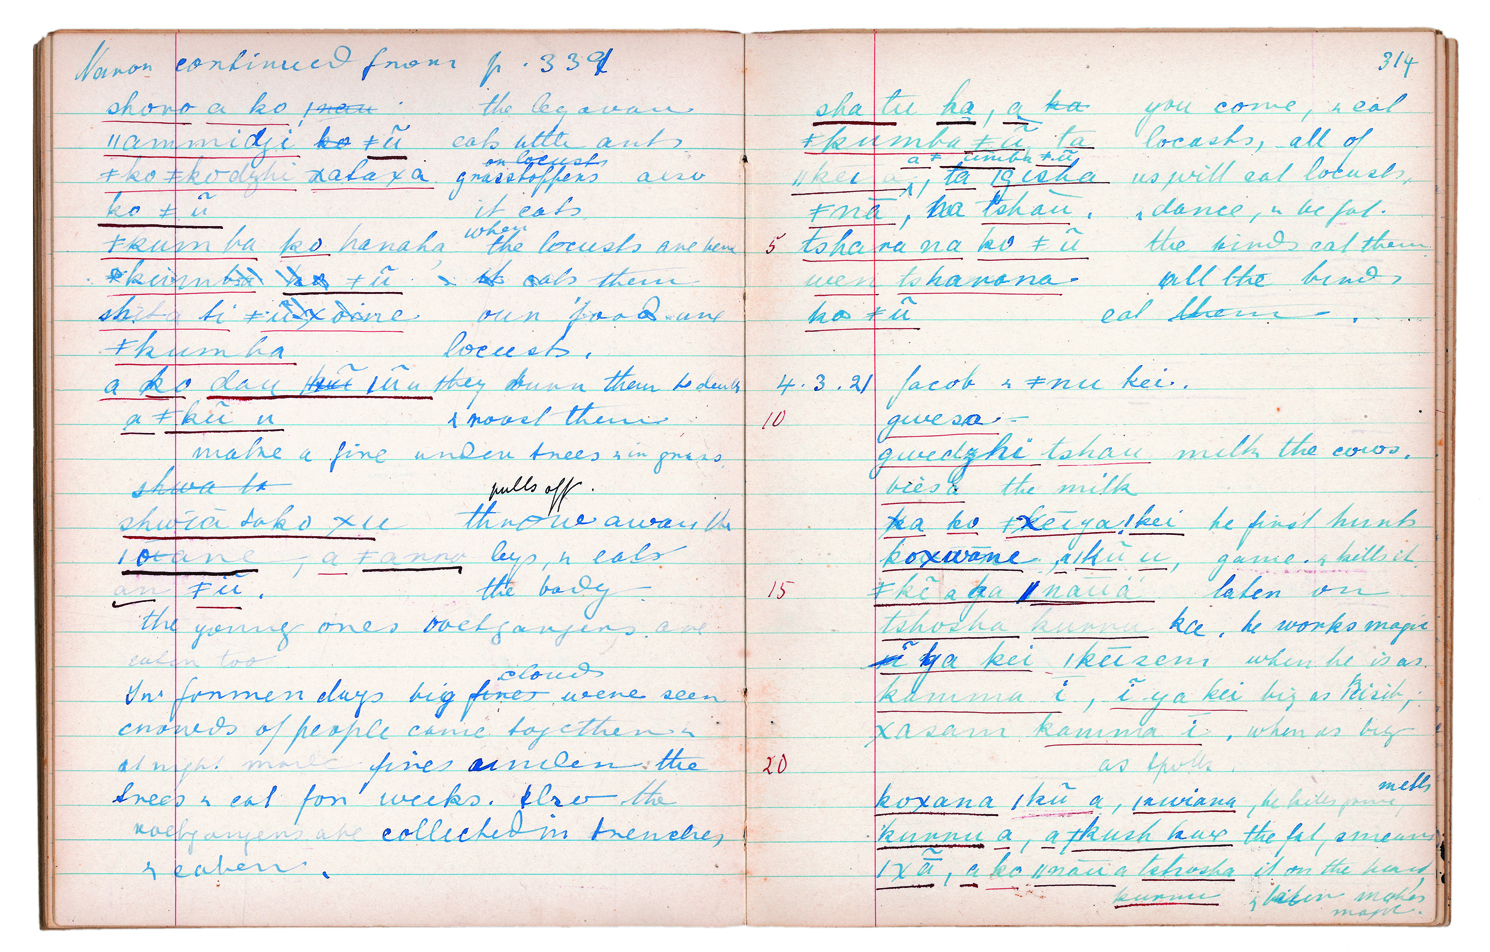 Naron continued from p. 339
shoro a ko, the legavaan
ǁammidzi ko ǂũ eats little ants.
ǂko ǂkodzhi xataxa grasshoppers or locusts also
ko ǂũ it eats
ǂkumba ko hanaha, when the locusts are here
ǂkumba ko ǂũ eats them
ti ǂũ our food are
ǂkumba locusts.
a ko dau ǀũu they burn them to death
a ǂkũ u & roast them
make a fire under trees & in grass
shwa ta pulls off.
shwīā sako xu throw away the
ǀotane, a ǂanno legs, & eats
an ǂũ. the body
the young ones voetgangers are
eaten too
In former days big fires clouds were seen
crowds of people came together &
at night made fires under the
trees & eat for weeks. Also the
voetgangers are collected in trenches
& eaten.
314
sha tu ha, a ka you come, & eat
ǂkumba ǂũ ta locusts, all of
a ǂkumba ǂũ
ǁkei a, ta ǀgisha us will eat locusts,
ǂnā, ha tshāu. & dance, & be fat.
5 tshara na ko ǂũ the birds eat them
wen tsharona all the birds
ko ǂũ eat them.
4.3.21 Jacob & ǂnu kei..
10 gwesa
gwedzhi tshau milk the cows.
biesa the milk
ka ko ǂxēi ya ǃkei he first hunts
koxwane, ǀkũ u, game. & kills it
15 ǂkē a ga ǁnāuä later on
tshosha kurru ka, he works magic
ĩ ya kei ǀkūzem when he is as
kamma ĩ, ĩ ya kei big as Kisib,
xasam kamma ĩ, when as big
20 as Spolk.
koxana ǀkũ a, ǀnwiana, he kills game, melts
kurru a, a ǂkush kwe the fat, smears
ǀxā, a ko ǁnāu a tshosha it on the head
kurru & later makes
magic.